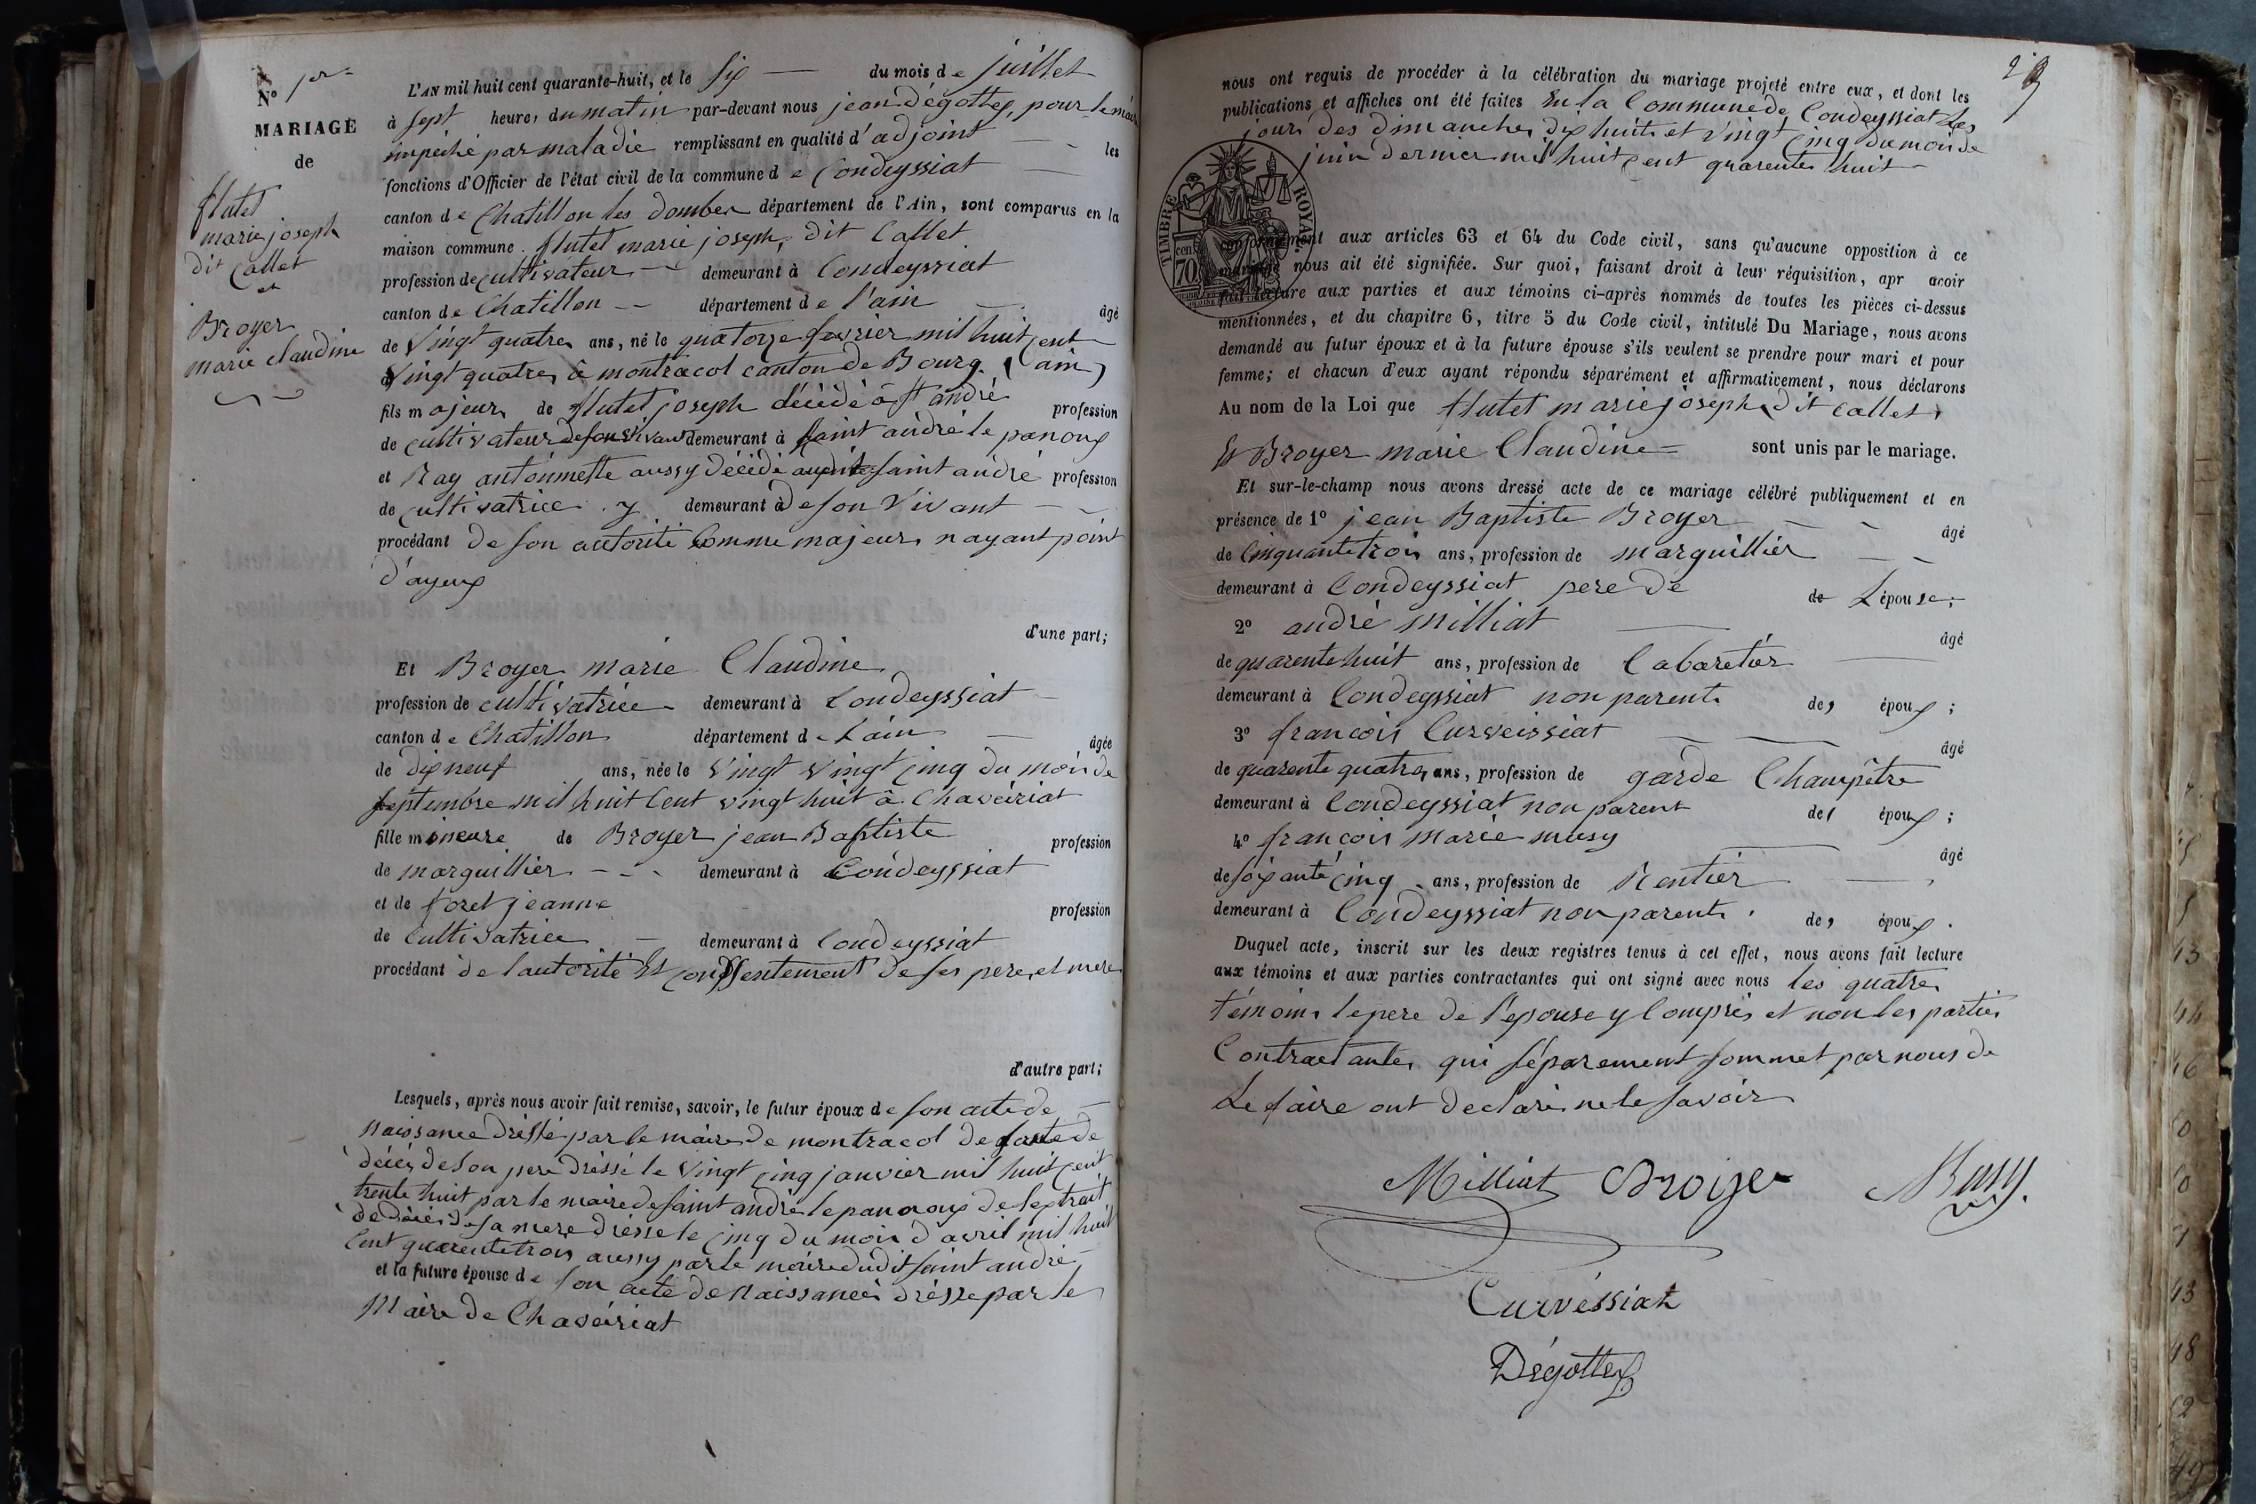 N° 1er
MARIAGE
de
flutet
marie joseph
dit Callet
et
Broyer
marie claudine
L'AN mil huit cent quarante-huit, et le six du mois de juillet
à sept heures du matin par-devant nous jean dégottex, pour le maire
impeché par maladie remplissant en qualité d'adjoint les
fonctions d'Officier de l'état civil de la commune de Condeyssiat
canton de Chatillon les dombes département de l'Ain, sont comparus en la
maison commune. flutet marie joseph, dit Callet
profession de cultivateur demeurant à Condeyssiat
canton de Chatillon département de l'ain âgé
de Vingt quatre ans, né le quatorze fevrier mil huit cent
Vingt quatre, à montracol canton de Bourg. (ain)
fils majeur de flutet joseph décédé à st andré profession
de cultivateur de son vivant demeurant à saint andré le panoux
et Ray antoinnette aussy décédé saint andré profession
de cultivatrice y demeurant à de son Vivant
procédant de son autorité Comme majeur, n'ayant point
d'ayeux
d'une part;
Et Broyer marie Claudine
profession de cultivatrice demeurant à Condeyssiat
canton de Chatillon département de L'ain âgée
de dix neuf ans, née le Vingt Vingt cinq du mois de
septembre mil huit Cent vingt huit à Chavéiriat
fille mineure de Broyer jean Baptiste profession
de marguillier demeurant à Condeyssiat
et de foret jeanne profession
de Cultivatrice demeurant à Condeyssiat
procédant de l'autorité Et consentement de ses pere, et mere
d'autre part;
Lesquels, après nous avoir fait remise, savoir, le futur époux de son acte de
naissance dréssé par le maire de montracol de de
décés de son pere dréssé le Vingt cinq janvier mil huit cent
trente huit par le maire de saint andré le panoux de l'extrait
de décés de sa mere dréssé le cinq du mois d'avril mil huit
Cent quarente trois aussy par le maire dudit saint andré
et la future épouse de son acte de Naissance dréssé par le
Maire de Chavéiriat
23
nous ont requis de procéder à la célébration du mariage projeté entre eux, et dont les
publications et affiches ont été faites En la Commune de Condeyssiat les
jours des dimanches dix huit et Vingt cinq du mois de
juin dernier mil huit cent quarente huit
TIMBRE ROYAL
70 cen
conformément aux articles 63 et 64 du Code civil, sans qu'aucune opposition à ce
mariage nous ait été signifiée. Sur quoi, faisant droit à leur réquisition, apr avoir
fait lecture aux parties et aux témoins ci-après nommés de toutes les pièces ci-dessus
mentionnées, et du chapitre 6, titre 5 du Code civil, intitulé Du Mariage, nous avons
demandé au futur époux et à la future épouse s'ils veulent se prendre pour mari et pour
femme; et chacun d'eux ayant répondu séparément et affirmativement, nous déclarons
Au nom de la Loi que flutet marie joseph dit Callet,
Et Broyer marie Claudine sont unis par le mariage.
Et sur-le-champ nous avons dressé acte de ce mariage célébré publiquement et en
présence de 1° jean Baptiste Broyer âgé
de Cinquante trois ans, profession de marguillier
demeurant à Condeyssiat pere de de L'épouse;
2° andré Milliat âgé
de quarente huit ans, profession de Cabaretier
demeurant à Condeyssiat non parent des époux;
3° francois Curveissiat âgé
de quarente quatre ans, profession de garde Champêtre
demeurant à Condeyssiat non parent des époux;
4° françois marie musy âgé
de soixante cinq ans, profession de Rentier
demeurant à Condeyssiat non parent. des époux.
Duquel acte, inscrit sur les deux registres tenus à cet effet, nous avons fait lecture
aux témoins et aux parties contractantes qui ont signé avec nous les quatre
témoins le pere de l'epouse y Compris et non les parties
Contractantes qui séparement sommet par nous de
Le faire ont declaré ne le savoir
Milliat Broye Musy.
Curvéssiat
Dégottex